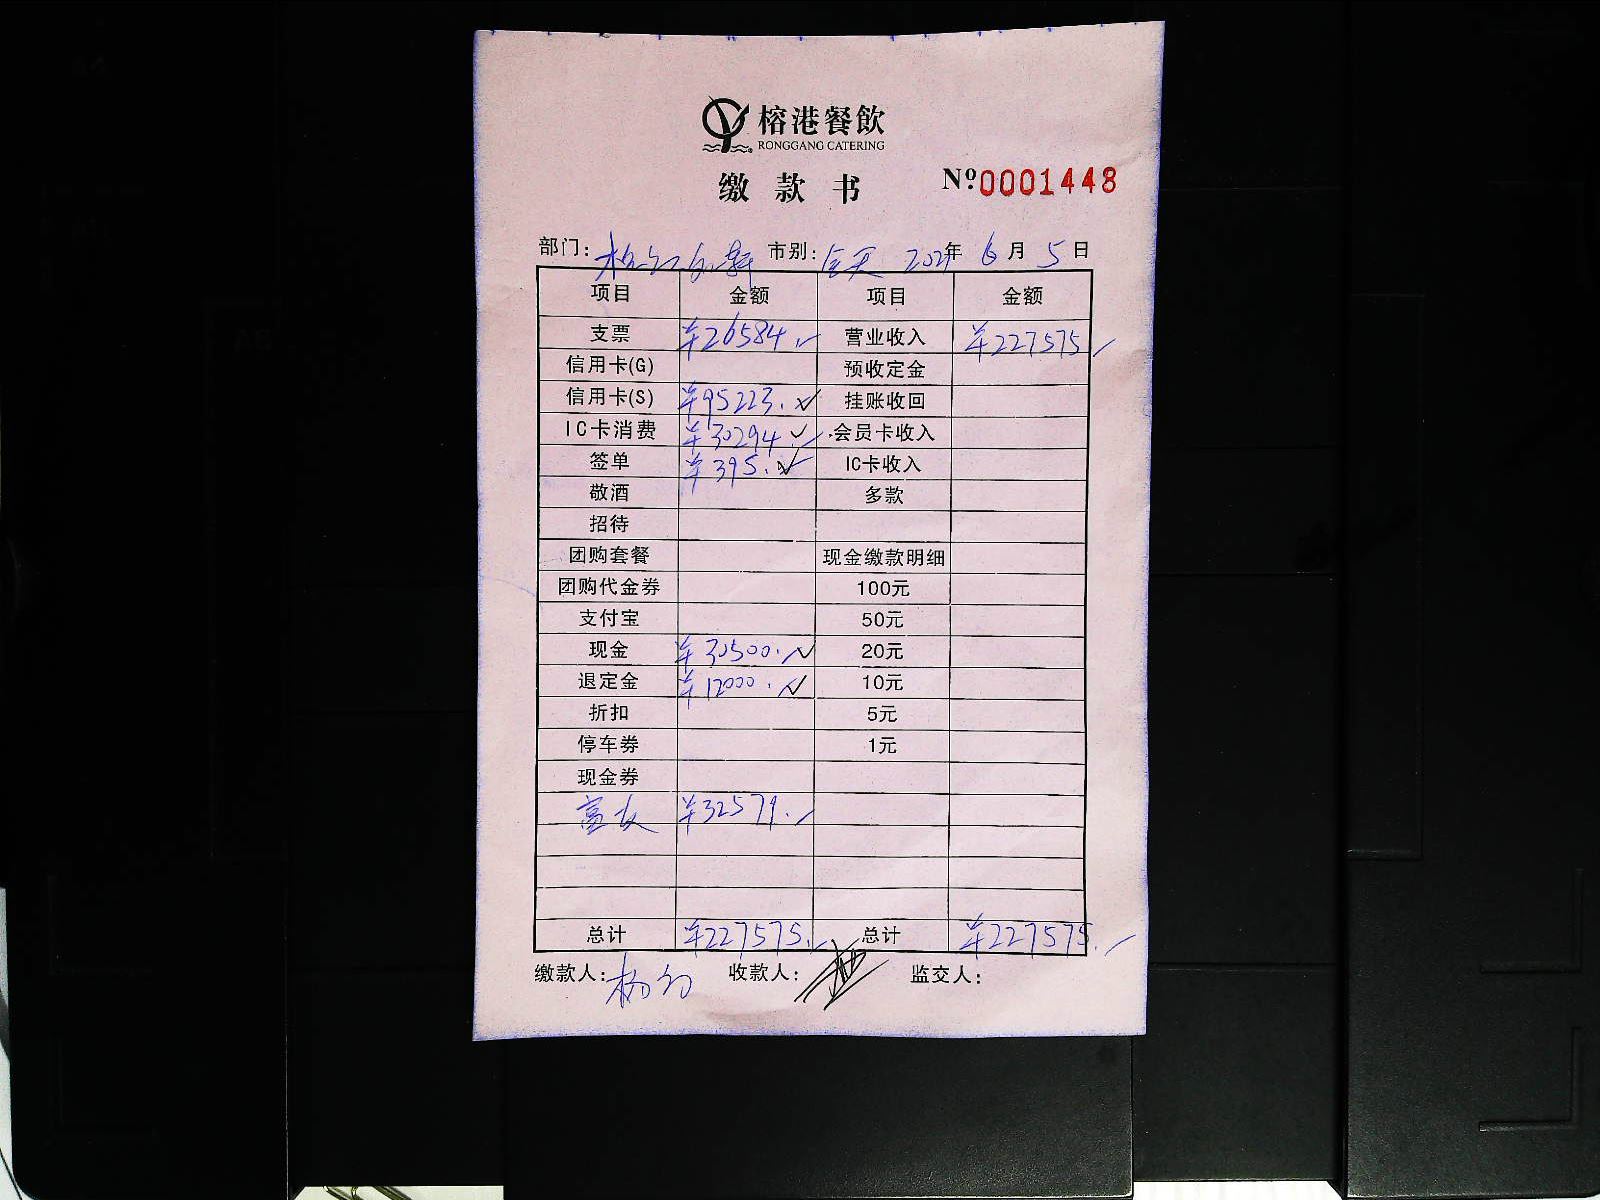 榕港餐飲
RONGGANG CATERING
缴款书 Nº0001448
部门: 市别:全天 2021年6月5日
项目 金额 项目 金额
支票 ¥26584. 营业收入 ¥227575
信用卡(G) 预收定金
信用卡(S) ¥95223. 挂账收回
IC卡消费 ¥30294. 会员卡收入
签单 ¥395. IC卡收入
敬酒 多款
招待
团购套餐 现金缴款明细
团购代金券 100元
支付宝 50元
现金 ¥30500. 20元
退定金 ¥12000. 10元
折扣 5元
停车券 1元
现金券
富友 ¥32579.
总计 ¥227575. 总计 ¥227575.
缴款人: 收款人: 监交人: